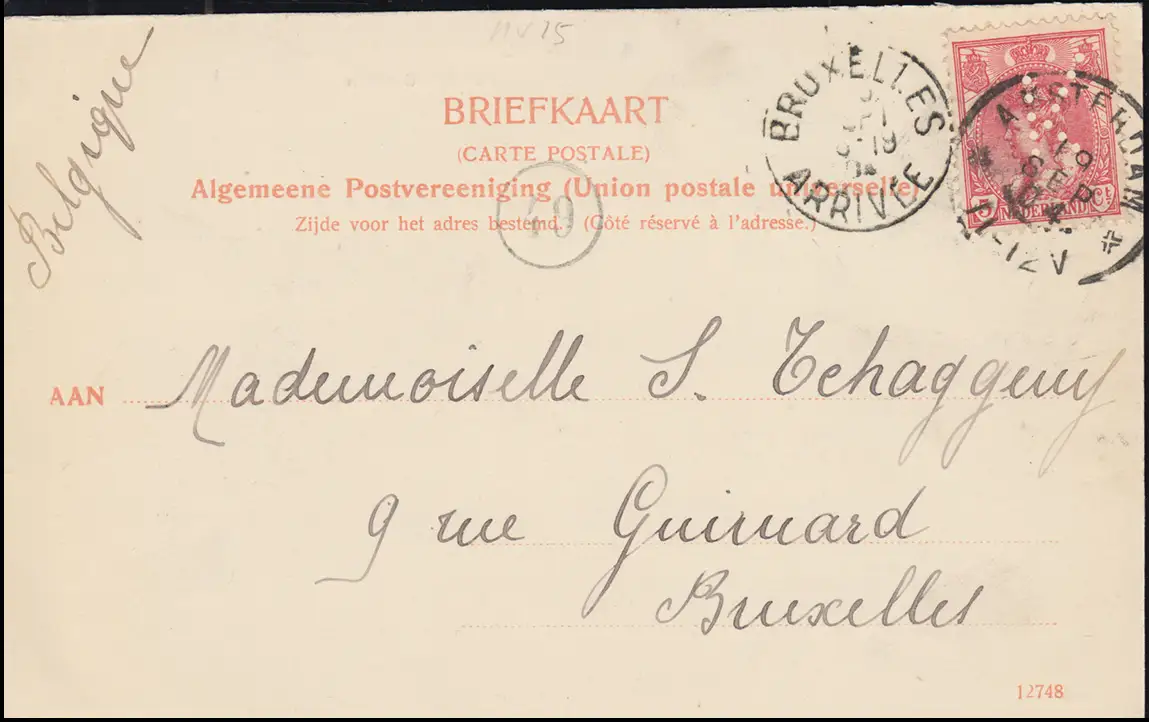 Belgique
BRIEFKAART
(CARTE POSTALE)
Algemeene Postvereeniging (Union postale universelle)
Zijde voor het adres bestemd. (Côté réservé à l'adresse.)
BRUXELLES
ARRIVÉE
AMSTERDAM
19 SEP
11-12V
5 NEDERLAND Ct
49
AAN Mademoiselle S. Tchaggeny
9 rue Guimard
Bruxelles
12748